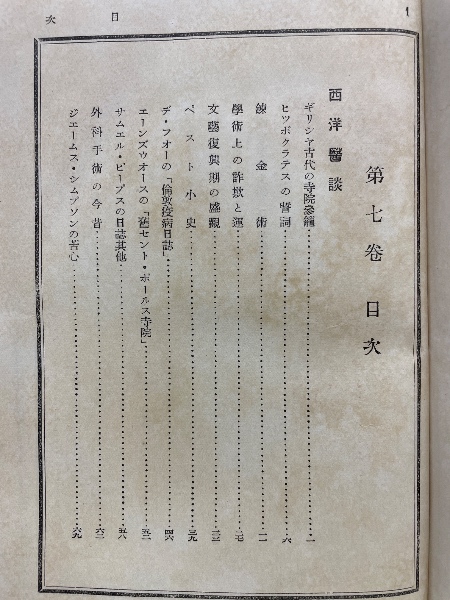 目次
1
第七卷 目次
西洋醫談
ギリシヤ古代の寺院參籠……一
ヒツポクラテスの誓詞……六
鍊金術……一一
學術上の詐欺と運……一七
文藝復興期の盛觀……二三
ペスト小史……三九
デ・フオーの「倫敦疫病日誌」……四六
エーンズウオースの「舊セント・ポールス寺院」……五二
サムエル・ピープスの日誌其他……五八
外科手術の今昔……六二
ジエームス・シムプソンの苦心……六九